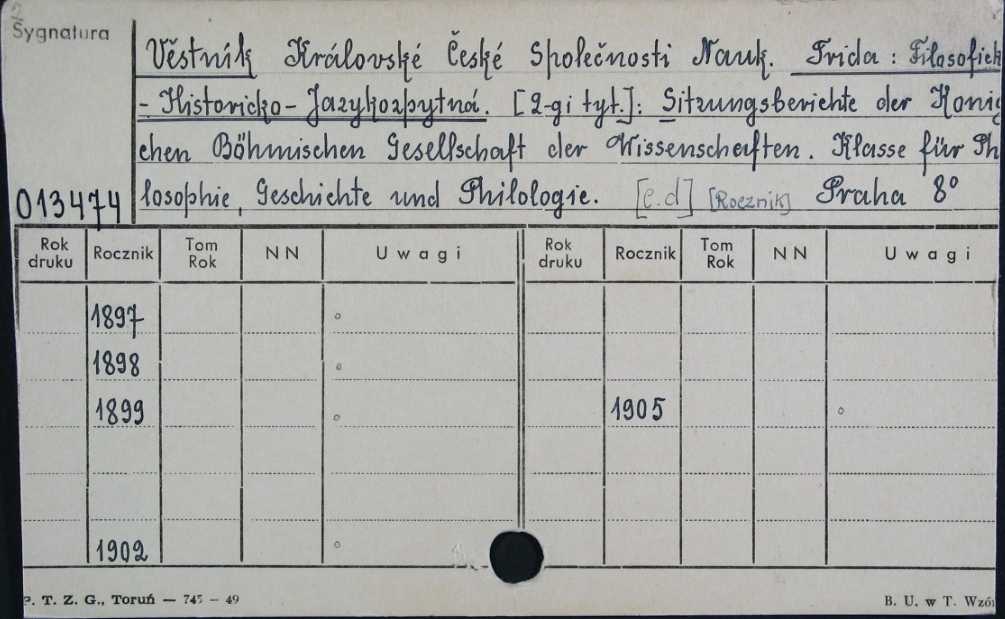 Sygnatura
Věstník Královské České Společnosti Nauk. Třida : Filosofick
- Historicko - Jazykozpytná. [2-gi tyt.]: Sitzungsberichte der Konig
chen Böhmischen Gesellschaft der Wissenschaften. Klasse für Ph
013474 losophie, Geschichte und Philologie. [c.d] [Rocznik] Praha 8°
Rok druku Rocznik Tom Rok NN Uwagi Rok druku Rocznik Tom Rok NN Uwagi
1897 °
1898 °
1899 ° 1905 °
1902 °
P. T. Z. G., Toruń — 745 — 49 B. U. w T. Wzó